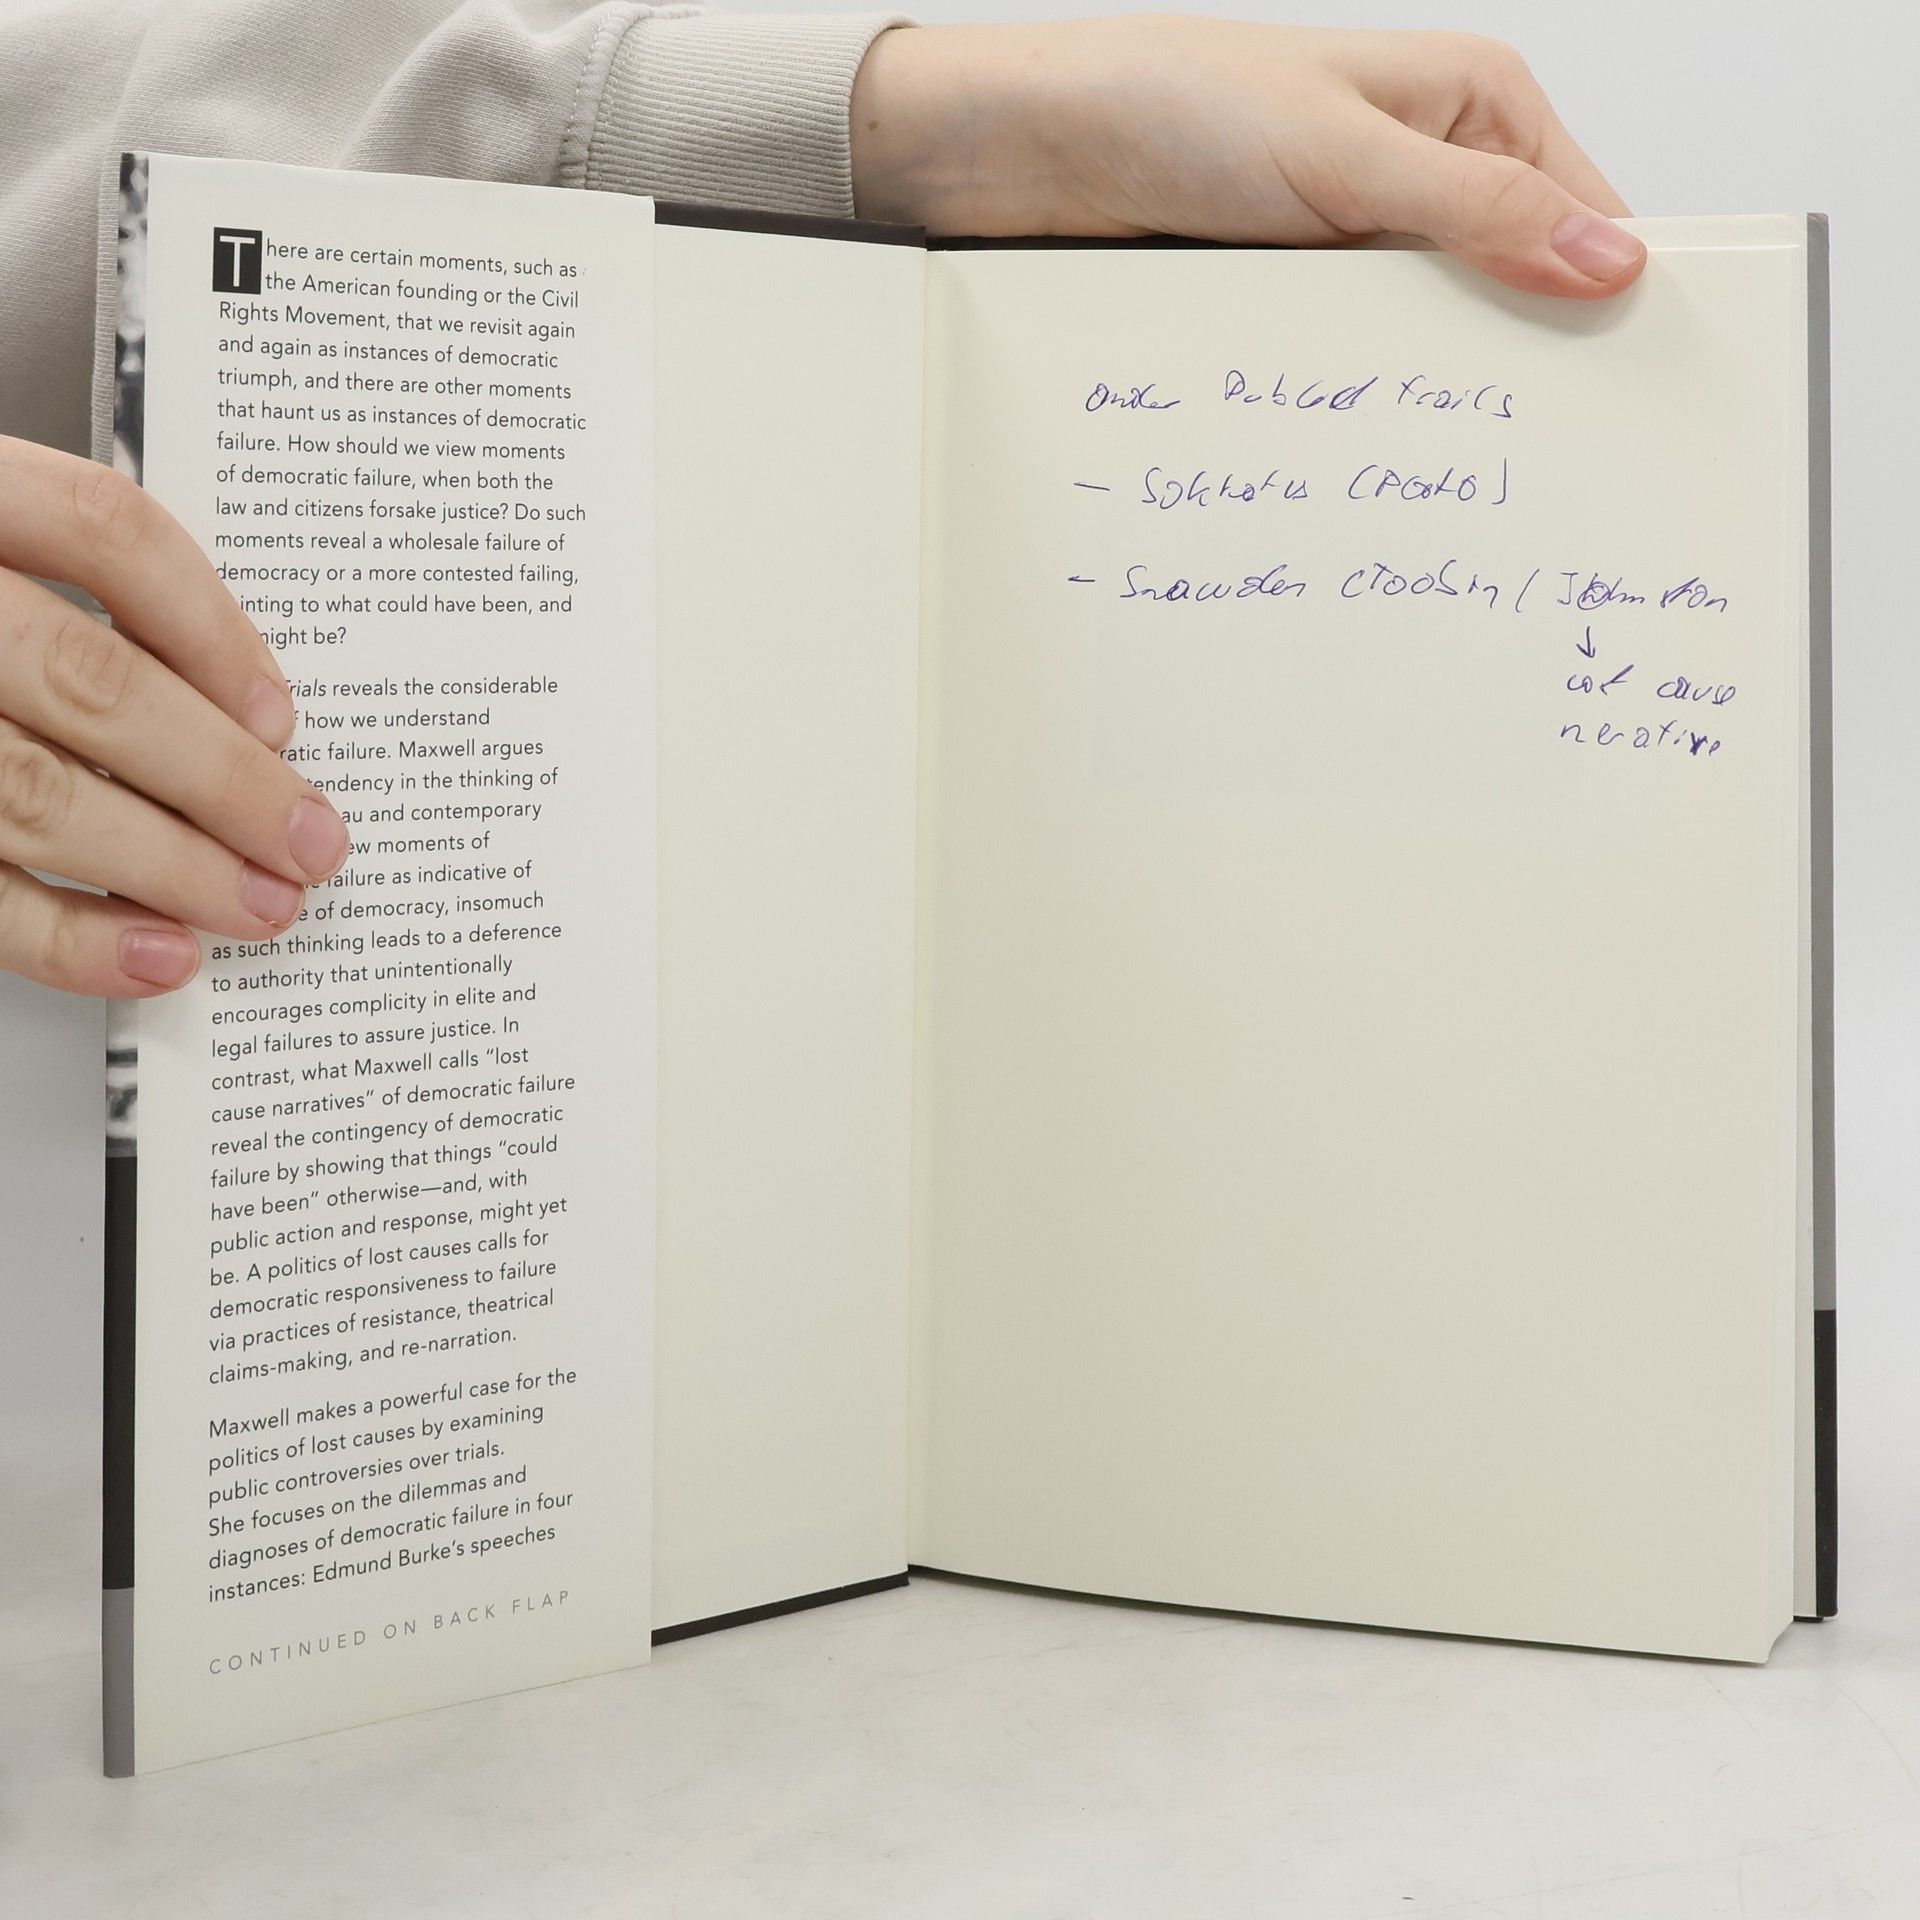 There are certain moments, such as
the American founding or the Civil
Rights Movement, that we revisit again
and again as instances of democratic
triumph, and there are other moments
that haunt us as instances of democratic
failure. How should we view moments
of democratic failure, when both the
law and citizens forsake justice? Do such
moments reveal a wholesale failure of
democracy or a more contested failing,
inting to what could have been, and
might be?
Trials reveals the considerable
how we understand
ratic failure. Maxwell argues
tendency in the thinking of
au and contemporary
ew moments of
failure as indicative of
e of democracy, insomuch
as such thinking leads to a deference
to authority that unintentionally
encourages complicity in elite and
legal failures to assure justice. In
contrast, what Maxwell calls “lost
cause narratives” of democratic failure
reveal the contingency of democratic
failure by showing that things “could
have been” otherwise—and, with
public action and response, might yet
be. A politics of lost causes calls for
democratic responsiveness to failure
via practices of resistance, theatrical
claims-making, and re-narration.
Maxwell makes a powerful case for the
politics of lost causes by examining
public controversies over trials.
She focuses on the dilemmas and
diagnoses of democratic failure in four
instances: Edmund Burke’s speeches
CONTINUED ON BACK FLAP
trails
- (Plato)
- Snowden / Johnston
↓
cause